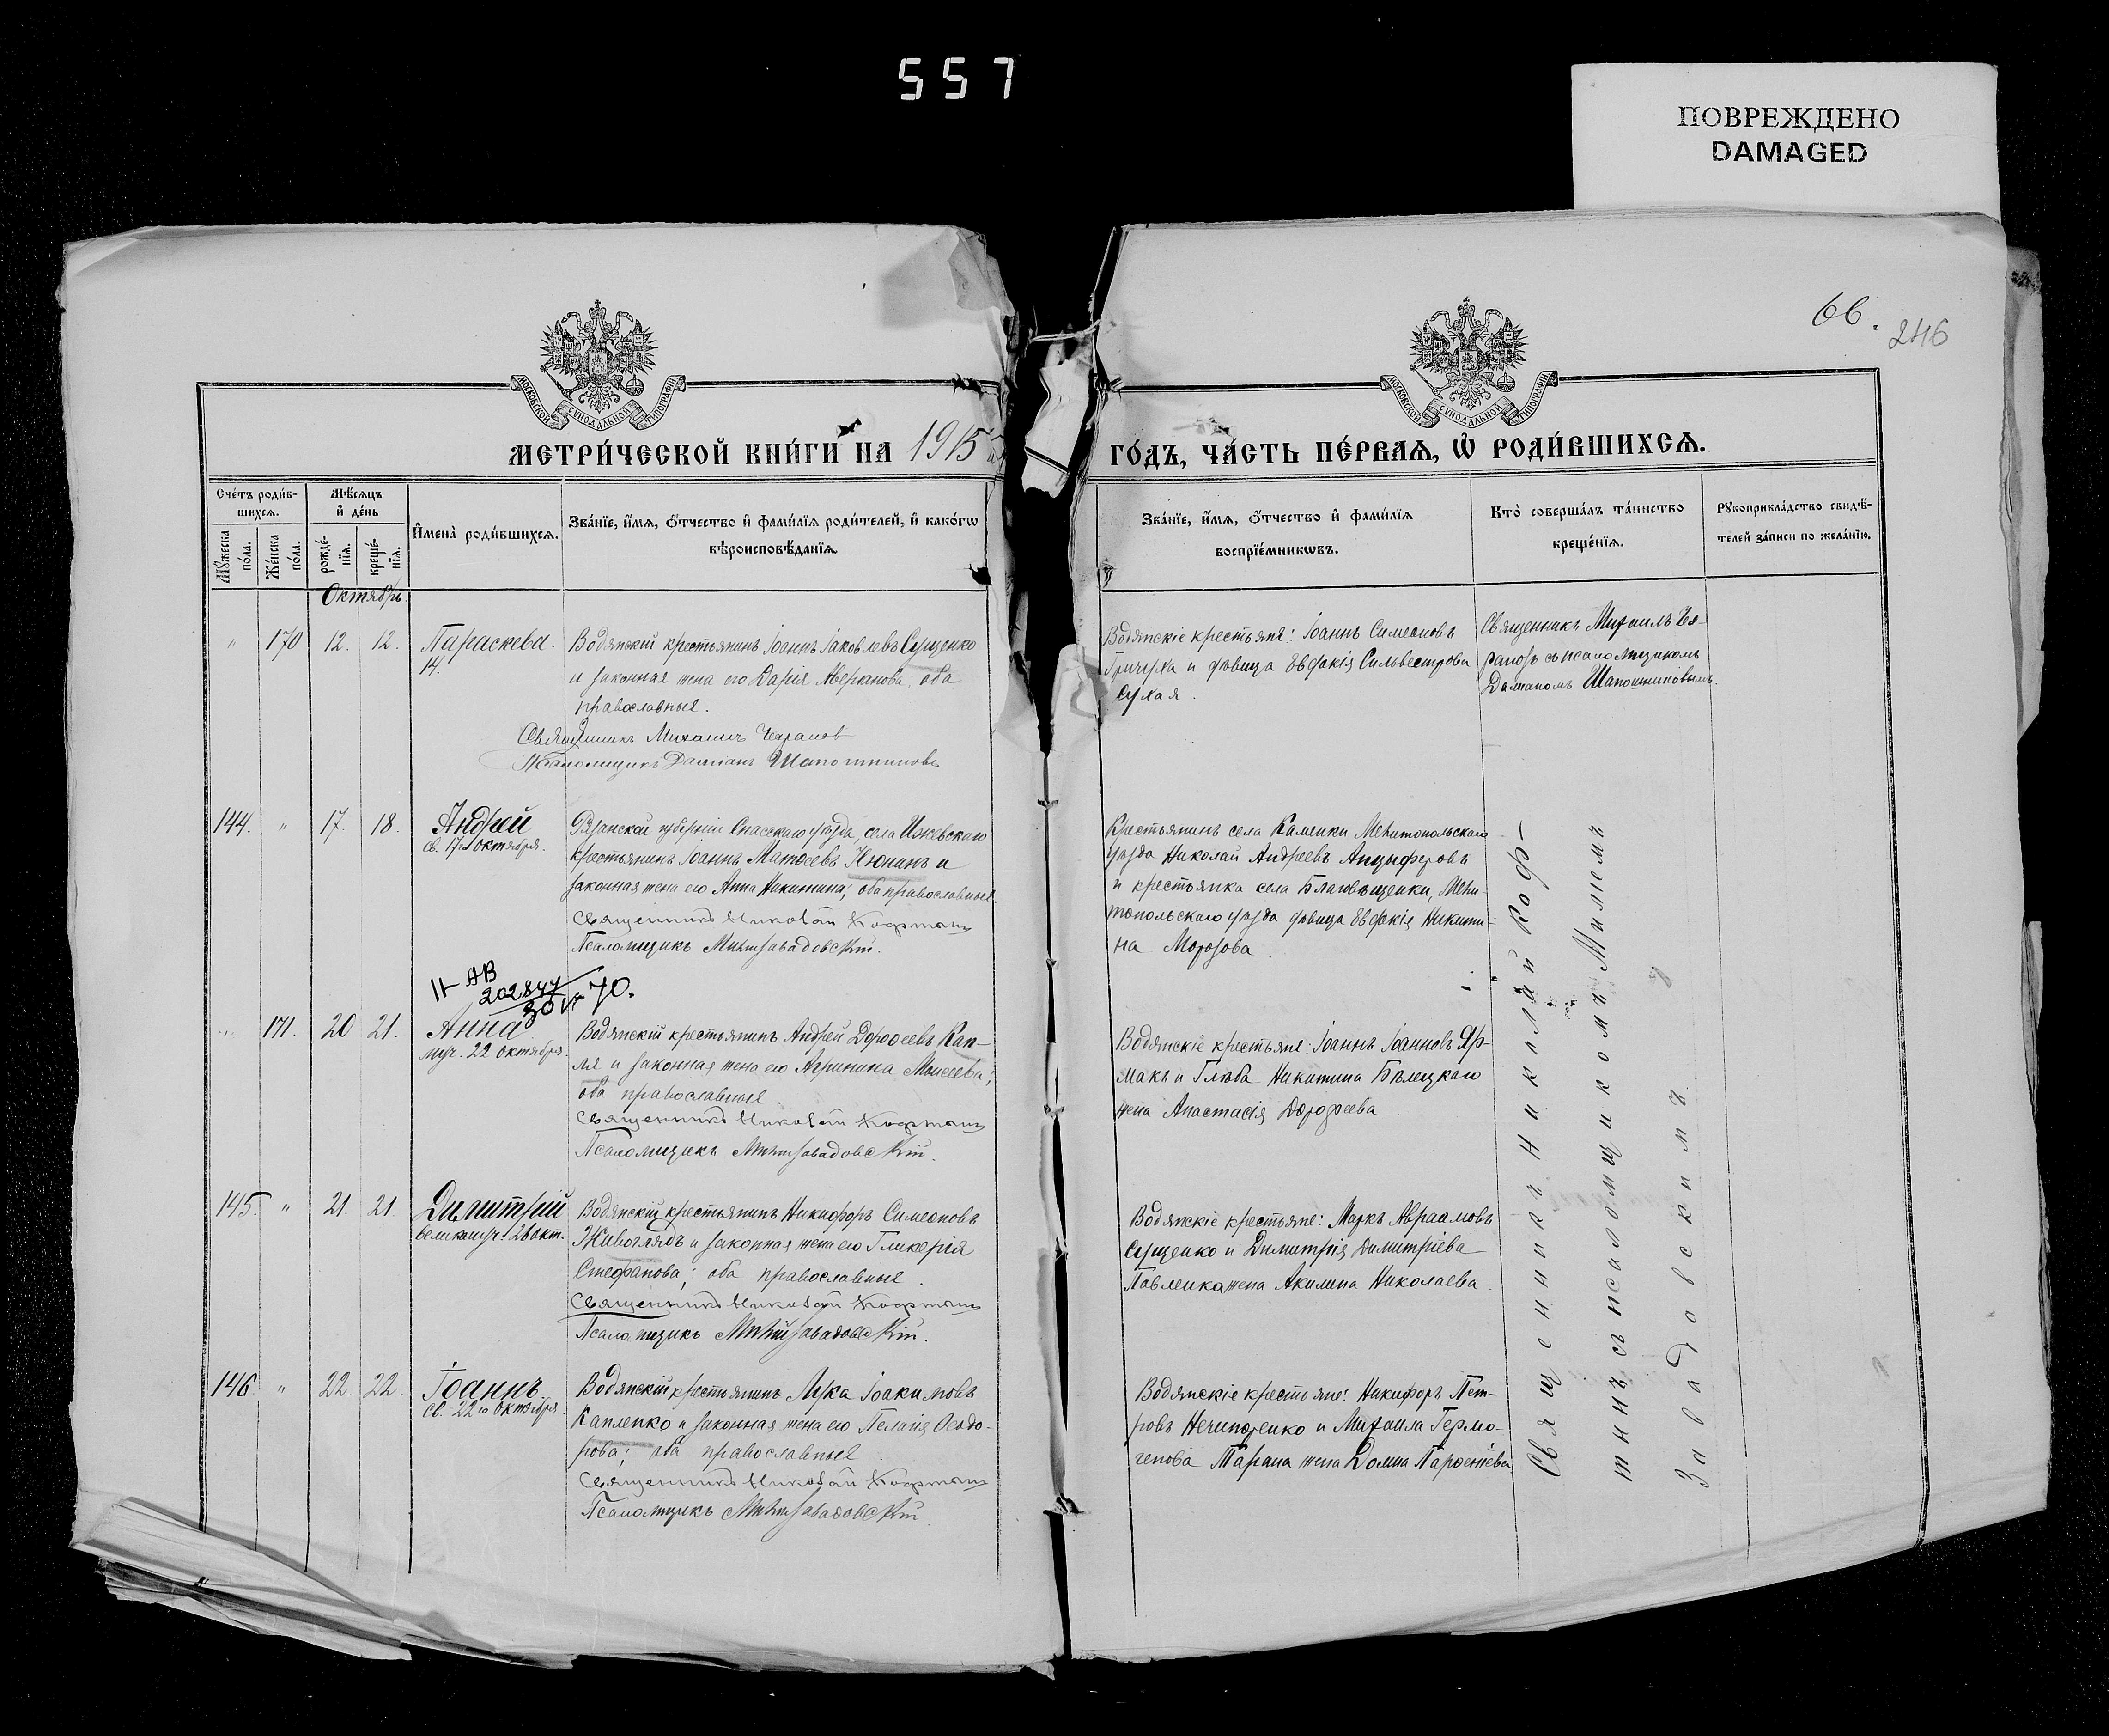 557
ПОВРЕЖДЕНО
DAMAGED
66.
246
МОСКОВСКОЙ СѴНОДАЛЬНОЙ ТИПОГРАФІИ
МОСКОВСКОЙ СѴНОДАЛЬНОЙ ТИПОГРАФІИ
МЕТРИ́ЧЕСКОЙ КНИ́ГИ НА 1915
ГО́ДЪ, ЧА́СТЬ ПЕ́РВАѦ, Ѡ҆ РОДИ́ВШИХСѦ.
Сче́тъ роди́в-
шихсѧ.
Мѣ́сѧцъ
и҆ де́нь
Мꙋ́жеска
по́ла.
Же́нска
по́ла.
рожде́-
нїѧ.
креще́-
нїѧ.
И҆мена̀ роди́вшихсѧ.
Зва́нїе, и҆́мѧ, ѻ҆́тчество и҆ фами́лїѧ роди́телей, и҆ како́гѡ
вѣроисповѣ́данїѧ.
Зва́нїе, и҆́мѧ, ѻ҆́тчество и҆ фами́лїѧ
воспрїе́мникѡвъ.
Кто̀ соверша́лъ та́инство
креще́нїѧ.
Рꙋкоприкла́дство свидѣ́-
телей за́писи по жела́нїю.
Октябрь.
" 170 12. 12. Параскева.
14.
Водянскій крестьянинъ Іоаннъ Іаковлевъ Сущенко
и законная жена его Дарія Аверкіова, оба
православные.
Священникъ Михаилъ
Псаломщикъ Даміанъ Шапошниковъ
Водянскіе крестьяне: Іоаннъ Симеоновъ
и дѣвица Евдокія Сильвестрова
Сухая.
Священникъ Михаилъ
съ псаломщикомъ
Даміаномъ Шапошниковымъ.
144. " 17. 18. Андрей
св. 17го октября.
Рязанской губерніи Спасскаго уѣзда, села Ижевскаго
крестьянинъ Іоаннъ Матѳеевъ Клюнинъ и
законная жена его Анна Никитина; оба православные.
Священникъ Николай Кофтанъ
Псаломщикъ Завадовскій.
Крестьянинъ села Каменки Мелитопольскаго
уѣзда Николай Андреевъ Анцыферовъ
и крестьянка села Благовѣщенки, Мели-
топольскаго уѣзда дѣвица Евдокія Никити-
на Морозова.
II-АВ
202844
30 VI 70.
" 171. 20 21. Анна
муч. 22 октября.
Водянскій крестьянинъ Андрей Дороѳеевъ Кап-
ля и законная жена его Агрипина Моисеева;
оба православные.
Священникъ Николай Кофтанъ
Псаломщикъ Завадовскій.
Водянскіе крестьяне: Іоаннъ Іоанновъ Яр-
макъ и Глѣба Никитина Бѣлецкаго
жена Анастасія Дороѳеева.
145. " 21. 21. Димитрій
великомуч. 26 окт.
Водянскій крестьянинъ Никифоръ Симеоновъ
Живоглядъ и законная жена его Гликерія
Стефанова; оба православные.
Священникъ Николай Кофтанъ
Псаломщикъ Завадовскій.
Водянскіе крестьяне: Маркъ Авраамовъ
Сущенко и Димитрія Димитріева
Павленка жена Акилина Николаева.
146. " 22. 22. Іоаннъ.
св. 22го октября
Водянскій крестьянинъ Лука Іоакимовъ
Капленко и законная жена его Пелагія Ѳеодо-
рова; оба православные.
Священникъ Николай Кофтанъ
Псаломщикъ Завадовскій.
Водянскіе крестьяне: Никифоръ Пет-
ровъ Нечипоренко и Михаила Гермо-
генова Тарана жена Домна Парѳеніева
Священникъ Николай Коф-
танъ съ псаломщикомъ
Завадовскимъ